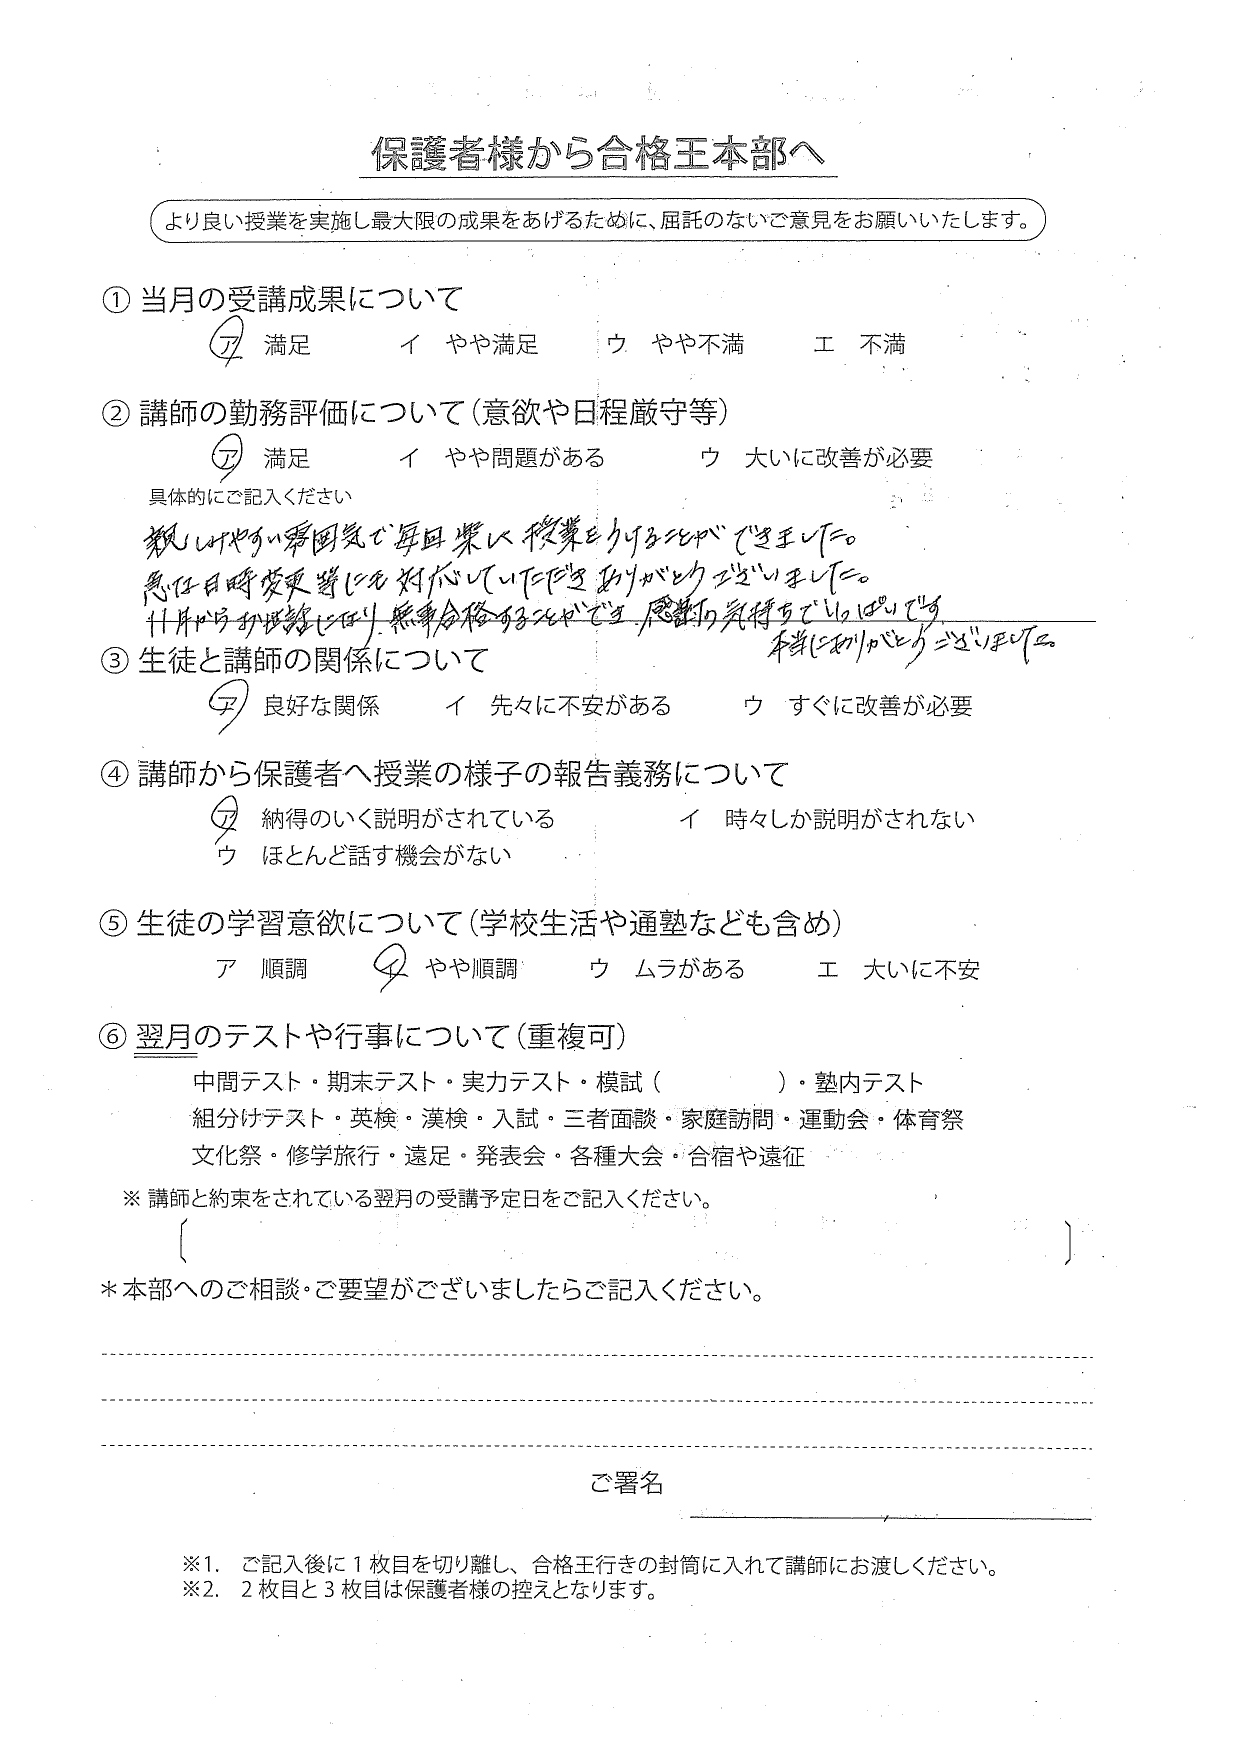 保護者様から合格王本部へ
より良い授業を実施し最大限の成果をあげるために、屈託のないご意見をお願いいたします。
① 当月の受講成果について
ア 満足 イ やや満足 ウ やや不満 エ 不満
② 講師の勤務評価について（意欲や日程厳守等）
ア 満足 イ やや問題がある ウ 大いに改善が必要
具体的にご記入ください
親しみやすい雰囲気で毎回楽しく授業をうけることができました。
急な日時変更等にも対応していただきありがとうございました。
11月からお世話になり、無事合格することができ、感謝の気持ちでいっぱいです。
本当にありがとうございました。
③ 生徒と講師の関係について
ア 良好な関係 イ 先々に不安がある ウ すぐに改善が必要
④ 講師から保護者へ授業の様子の報告義務について
ア 納得のいく説明がされている イ 時々しか説明がされない
ウ ほとんど話す機会がない
⑤ 生徒の学習意欲について（学校生活や通塾なども含め）
ア 順調 イ やや順調 ウ ムラがある エ 大いに不安
⑥ 翌月のテストや行事について（重複可）
中間テスト・期末テスト・実力テスト・模試（ ）・塾内テスト
組分けテスト・英検・漢検・入試・三者面談・家庭訪問・運動会・体育祭
文化祭・修学旅行・遠足・発表会・各種大会・合宿や遠征
※ 講師と約束をされている翌月の受講予定日をご記入ください。
〔 〕
＊本部へのご相談・ご要望がございましたらご記入ください。
ご署名
※1. ご記入後に1枚目を切り離し、合格王行きの封筒に入れて講師にお渡しください。
※2. 2枚目と3枚目は保護者様の控えとなります。